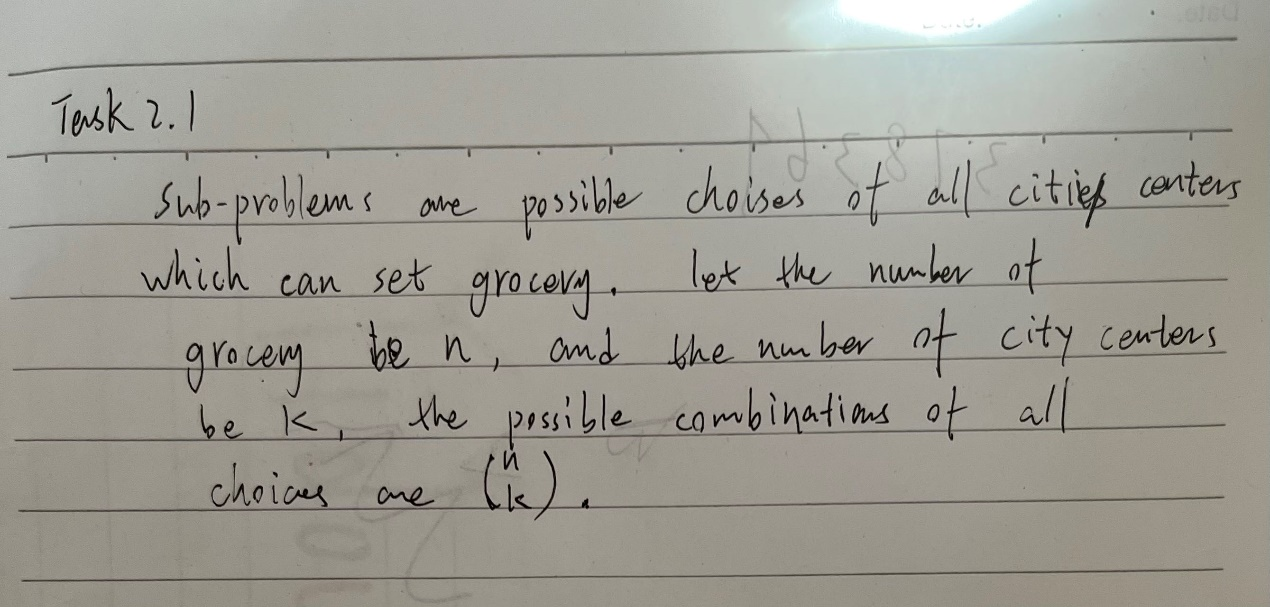 Task 2.1
Sub-problems are possible choises of all cities centers
which can set grocery. let the number of
grocery be n, and the number of city centers
be k, the possible combinations of all
choices are (n k).